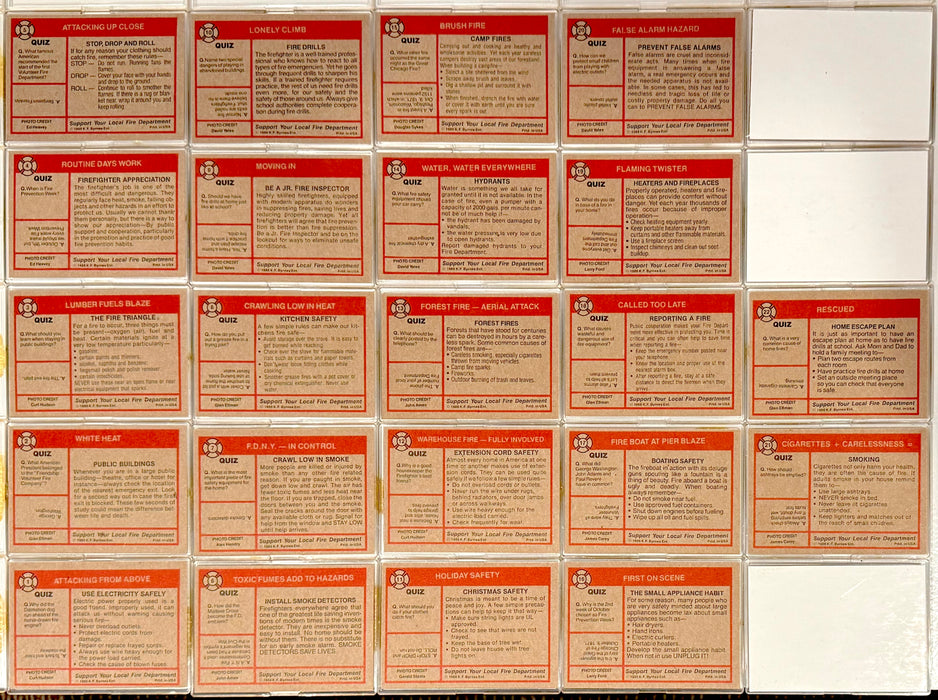 5
ATTACKING UP CLOSE
QUIZ
Q. What famous
American
recommended the
start of the first
Volunteer Fire
Department?
STOP, DROP AND ROLL
If for any reason your clothing should
catch fire, remember these rules—
STOP — Do not run. Running fans the
flames.
DROP — Cover your face with your hands
and drop to the ground.
ROLL — Continue to roll to smother the
flames. If there is a rug or blan-
ket near, wrap it around you and
keep rolling.
PHOTO CREDIT
Ed Heavey
Support Your Local Fire Department
© 1989 K.F. Byrnes Ent. Prtd. in USA
10
LONELY CLIMB
QUIZ
Q. Name two special
dangers of fighting fires in
abandoned buildings
FIRE DRILLS
The firefighter is a well-trained profes-
sional who knows how to react to all
types of fire emergencies. Yet he goes
through frequent drills to sharpen his
skills. If a trained firefighter requires
practice, the rest of us need fire drills
even more, for our safety and the
safety of those around us. Always give
school authorities complete coopera-
tion during fire drills.
PHOTO CREDIT
David Yates
Support Your Local Fire Department
© 1989 K.F. Byrnes Ent. Prtd. in USA
15
BRUSH FIRE
QUIZ
Q. What other fire
occurred the same
night as the Great
Chicago Fire?
CAMP FIRES
Camping out and cooking are healthy and
wholesome activities. Yet each year careless
campers destroy vast areas of our forestland.
When building a campfire—
• Select a site sheltered from the wind
• Scrape away brush and leaves.
• Dig a shallow pit and surround it with
stones
• When finished, drench the fire with water
or cover it with earth until you are sure
every spark is out
PHOTO CREDIT
Douglas Sykes
Support Your Local Fire Department
© 1989 K.F. Byrnes Ent. Prtd. in USA
20
FALSE ALARM HAZARD
QUIZ
Q. How can you
protect small children
from playing with
electric outlets?
PREVENT FALSE ALARMS
False alarms are cruel and inconsid-
erate acts. Many times when fire
equipment is answering a false
alarm, a real emergency occurs and
the needed apparatus is not avail-
able. In some cases, this has led to
needless and tragic loss of life or
costly property damage. Do all you
can to PREVENT FALSE ALARMS.
PHOTO CREDIT
David Yates
Support Your Local Fire Department
© 1989 K.F. Byrnes Ent. Prtd. in USA
4
ROUTINE DAYS WORK
QUIZ
Q. When is Fire
Prevention Week?
FIREFIGHTER APPRECIATION
The firefighter's job is one of the
most difficult and dangerous. They
regularly face heat, smoke, falling ob-
jects and other hazards in an effort to
protect us. Usually we cannot thank
them personally, but there is a way to
show our appreciation—By public
support and cooperation, particularly
in the promotion and practice of good
fire prevention habits.
PHOTO CREDIT
Ed Heavey
Support Your Local Fire Department
© 1989 K.F. Byrnes Ent. Prtd. in USA
9
MOVING IN
QUIZ
Q. Should we have
fire drills at home just
like at school?
BE A JR. FIRE INSPECTOR
Highly skilled firefighters, equipped
with modern apparatus do wonders
in suppressing fires, saving lives and
reducing property damage. Yet all
firefighters will agree that fire preven-
tion is better than fire suppression.
Be a Jr. Fire Inspector and be on the
lookout for ways to eliminate unsafe
conditions.
PHOTO CREDIT
David Yates
Support Your Local Fire Department
© 1989 K.F. Byrnes Ent. Prtd. in USA
14
WATER, WATER EVERYWHERE
QUIZ
Q. What fire safety
equipment should be in
your car?
HYDRANTS
Water is something we all take for
granted until it is not available. In the
case of fire, even a pumper with a
capacity of 2000 gals. per minute can-
not be of much help if—
• the hydrant has been damaged by
vandals.
• the water pressure is very low due
to open hydrants.
Report damaged hydrants to your
Fire Department.
PHOTO CREDIT
David Yates
Support Your Local Fire Department
© 1989 K.F. Byrnes Ent. Prtd. in USA
19
FLAMING TWISTER
QUIZ
Q. What do you do
in case of a fire in
your home?
HEATERS AND FIREPLACES
Properly operated, heaters and fire-
places can provide comfort without
danger. Yet each year thousands of
fires occur because of improper
operation—
• Check heating equipment yearly.
• Keep portable heaters away from
curtains and other flammable materials.
• Use a fireplace screen.
• Inspect chimneys and clean out soot
buildup.
PHOTO CREDIT
Larry Ford
Support Your Local Fire Department
© 1989 K.F. Byrnes Ent. Prtd. in USA
3
LUMBER FUELS BLAZE
QUIZ
Q. What should you
learn when staying in
public buildings?
THE FIRE TRIANGLE
For a fire to occur, three things must
be present—oxygen (air), fuel and
heat. Certain materials ignite at a
very low temperature particularly—
• gasoline.
• certain paints and thinners.
• alcohol, naphtha and benzine.
• fingernail polish and polish remover.
• certain insecticides.
NEVER use these near an open flame or near
electrical equipment that sparks.
PHOTO CREDIT
Curt Hudson
Support Your Local Fire Department
© 1989 K.F. Byrnes Ent. Prtd. in USA
8
CRAWLING LOW IN HEAT
QUIZ
Q. How do you put
out a grease fire in a
frying pan?
KITCHEN SAFETY
A few simple rules can make our kit-
chens fire safe—
• Avoid storage over the stove. It is easy to
get burned while reaching.
• Check over the stove for flammable mate-
rials such as curtains and paper towels.
• Don't wear loose fitting clothes while
cooking.
• Smother grease fires with a pot cover or
any chemical extinguisher. Never use
water.
PHOTO CREDIT
Glen Ellman
Support Your Local Fire Department
© 1989 K.F. Byrnes Ent. Prtd. in USA
13
FOREST FIRE — AERIAL ATTACK
QUIZ
Q. What should be
clearly posted by the
telephone?
FOREST FIRES
Forests that have stood for centuries
can be destroyed in hours by a care-
less spark. Some common causes of
forest fires are—
• Careless smoking, especially cigarettes
thrown from moving vehicles.
• Camp fire sparks.
• Fireworks.
• Outdoor burning of trash and leaves.
PHOTO CREDIT
John Ames
Support Your Local Fire Department
© 1989 K.F. Byrnes Ent. Prtd. in USA
18
CALLED TOO LATE
QUIZ
Q. What causes
wasteful and
dangerous use of fire
equipment?
REPORTING A FIRE
Public cooperation makes your Fire Depart-
ment more effective in protecting you. Time is
critical and you can often help to save time
when reporting a fire—
• Keep the emergency number posted near
your telephone.
• Know the location and proper use of the
nearest alarm box.
• After reporting a fire, stay at a safe
distance to direct the firemen when they
arrive.
PHOTO CREDIT
Glen Ellman
Support Your Local Fire Department
© 1989 K.F. Byrnes Ent. Prtd. in USA
22
RESCUED
QUIZ
Q. What is a very
common cause of
home fires?
A. Careless cigarette
smoking.
HOME ESCAPE PLAN
It is just as important to have an
escape plan at home as to have fire
drills at school. Ask Mom and Dad to
hold a family meeting to—
• Plan two escape routes from
each room
• Have practice fire drills at home
• Set an outside meeting place
so you can check that everyone
is safe.
PHOTO CREDIT
Glen Ellman
Support Your Local Fire Department
© 1989 K.F. Byrnes Ent. Prtd. in USA
2
WHITE HEAT
QUIZ
Q. What American
President belonged
to the "Friendship
Volunteer Fire
Company"?
PUBLIC BUILDINGS
Whenever you are in a large public
building—theatre, office or hotel for
instance—always check the location
of the nearest emergency exit. Look
for a second way out in case the first
way is blocked. These few seconds of
study could mean the difference bet-
ween life and death.
PHOTO CREDIT
Glen Ellman
Support Your Local Fire Department
© 1989 K.F. Byrnes Ent. Prtd. in USA
7
F.D.N.Y. — IN CONTROL
QUIZ
Q. What is the most
important piece of fire
safety equipment for
the home?
A. Smoke detectors.
CRAWL LOW IN SMOKE
More people are killed or injured by
smoke than any other fire related
reason. If you are caught in smoke,
get down low and crawl. The air has
fewer toxic fumes and less heat near
the floor. If you are trapped, close the
doors between you and the smoke.
Seal the cracks around the door with
any available cloth or rug. Signal for
help from the window and STAY LOW
until help arrives.
PHOTO CREDIT
Alex Hendry
Support Your Local Fire Department
© 1989 K.F. Byrnes Ent. Prtd. in USA
12
WAREHOUSE FIRE — FULLY INVOLVED
QUIZ
Q. Why is a good
neighbor always the
firefighter's best
friend?
EXTENSION CORD SAFETY
Almost every home in America at one
time or another makes use of exten-
sion cords. They can be used quite
safely if we follow a few simple rules—
• Do not overload cords or outlets.
• Never run the wire under rugs,
behind radiators, over door jambs
or across walkways.
• Use wire heavy enough for the
electric load carried.
• Check frequently for wear.
PHOTO CREDIT
Curt Hudson
Support Your Local Fire Department
© 1989 K.F. Byrnes Ent. Prtd. in USA
17
FIRE BOAT AT PIER BLAZE
QUIZ
Q. What did
George Washington,
Sam Adams and
Paul Revere
have in common?
BOATING SAFETY
The fireboat in action with its deluge
guns spouting like a fountain is a
thing of beauty. Fire aboard a boat is
ugly and deadly. When boating
always remember—
• Do not smoke near fuel.
• Use approved fuel containers.
• Shut down engines before fueling.
• Wipe up all oil and fuel spills.
PHOTO CREDIT
James Carey
Support Your Local Fire Department
© 1989 K.F. Byrnes Ent. Prtd. in USA
21
CIGARETTES + CARELESSNESS =
QUIZ
Q. How should
matches be emptied?
SMOKING
Cigarettes not only harm your health,
they are often the cause of fire. If
adults smoke in your house remind
them to—
• Use large ashtrays
• NEVER smoke in bed.
• Never leave lit cigarettes
unattended.
• Keep lighters and matches out of
the reach of small children.
PHOTO CREDIT
James Carey
Support Your Local Fire Department
© 1989 K.F. Byrnes Ent. Prtd. in USA
1
ATTACKING FROM ABOVE
QUIZ
Q. Why did the
Dalmatian dog
run ahead of the
horse-drawn fire
engine?
USE ELECTRICITY SAFELY
Electric power properly used is a
good friend. Improperly used, it can
attack us without warning causing
serious fire—
• Never overload outlets.
• Protect electric cords from
damage.
• Repair or replace frayed cords.
• Always use wire heavy enough
for the power carried.
• Check the cause of blown fuses.
PHOTO CREDIT
Curt Hudson
Support Your Local Fire Department
© 1989 K.F. Byrnes Ent. Prtd. in USA
6
TOXIC FUMES ADD TO HAZARDS
QUIZ
Q. How did the
Maltese Cross
become the F.D.
emblem?
INSTALL SMOKE DETECTORS
Firefighters everywhere agree that
one of the greatest life saving inven-
tions of modern times is the smoke
detector. They are inexpensive and
easy to install. No home should be
without them. There is no substitute
for an early smoke alarm. SMOKE
DETECTORS SAVE LIVES.
PHOTO CREDIT
John Ames
Support Your Local Fire Department
© 1989 K.F. Byrnes Ent. Prtd. in USA
11
HOLIDAY SAFETY
QUIZ
Q. What should you
do if your clothes
catch fire?
CHRISTMAS SAFETY
Christmas is meant to be a time of
peace and joy. A few simple precau-
tions can help to keep it that way—
• Make sure string lights are UL
approved.
• Check to see that wires are not
frayed.
• Keep the base of tree wet.
• Do not leave house with tree
lights on.
PHOTO CREDIT
Support Your Local Fire Department
© 1989 K.F. Byrnes Ent. Prtd. in USA
16
FIRST ON SCENE
QUIZ
Q. Why is the 2nd
week of October
chosen as Fire
Prevention Week?
THE SMALL APPLIANCE HABIT
For some reason, many people who
are very safety minded about large
appliances become lax about small
appliances such as—
• Hair dryers.
• Hand irons.
• Electric curlers.
• Portable heaters.
Develop the small appliance habit.
When not in use UNPLUG IT!
PHOTO CREDIT
Larry Ford
Support Your Local Fire Department
© 1989 K.F. Byrnes Ent. Prtd. in USA